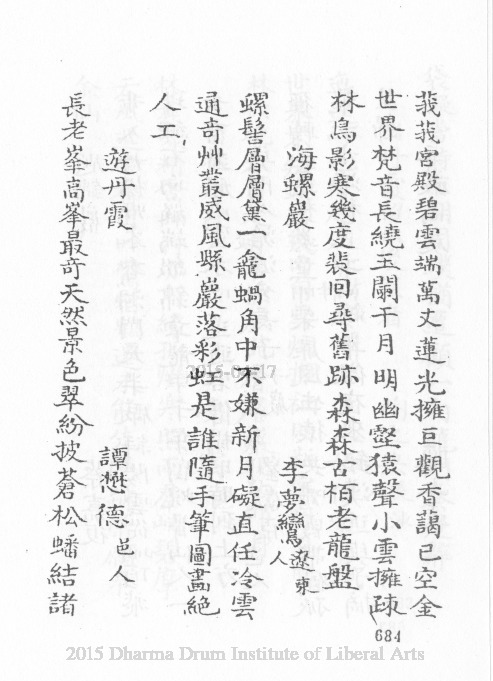 莪莪宮殿碧雲端萬丈蓮光擁巨觀香藹已空金
世界梵音長繞玉闌干月明幽壑猿聲小雲擁疎
林鳥影寒幾度裴回尋舊跡森森古栢老龍盤
海螺巖 李夢鸞遼東人
螺髻層層黛一龕蝸角中不嫌新月礙直任冷雲
通奇艸叢威風縣巖落彩虹是誰隨手筆圖畵絶
人工
遊丹霞 譚懋德邑人
長老峯高峯最奇天然景色翠紛披蒼松蟠結諸
684
2015-04-17
2015 Dharma Drum Institute of Liberal Arts